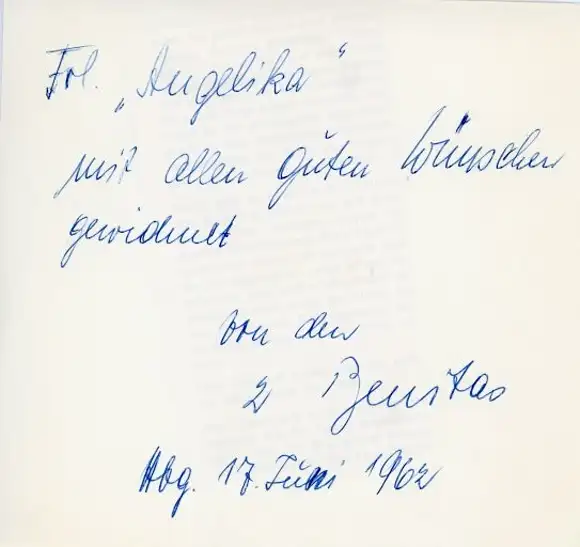 Frl. „Angelika“
mit allen guten Wünschen
gewidmet
von den
2 Benitas
Abg. 17. Juni 1962